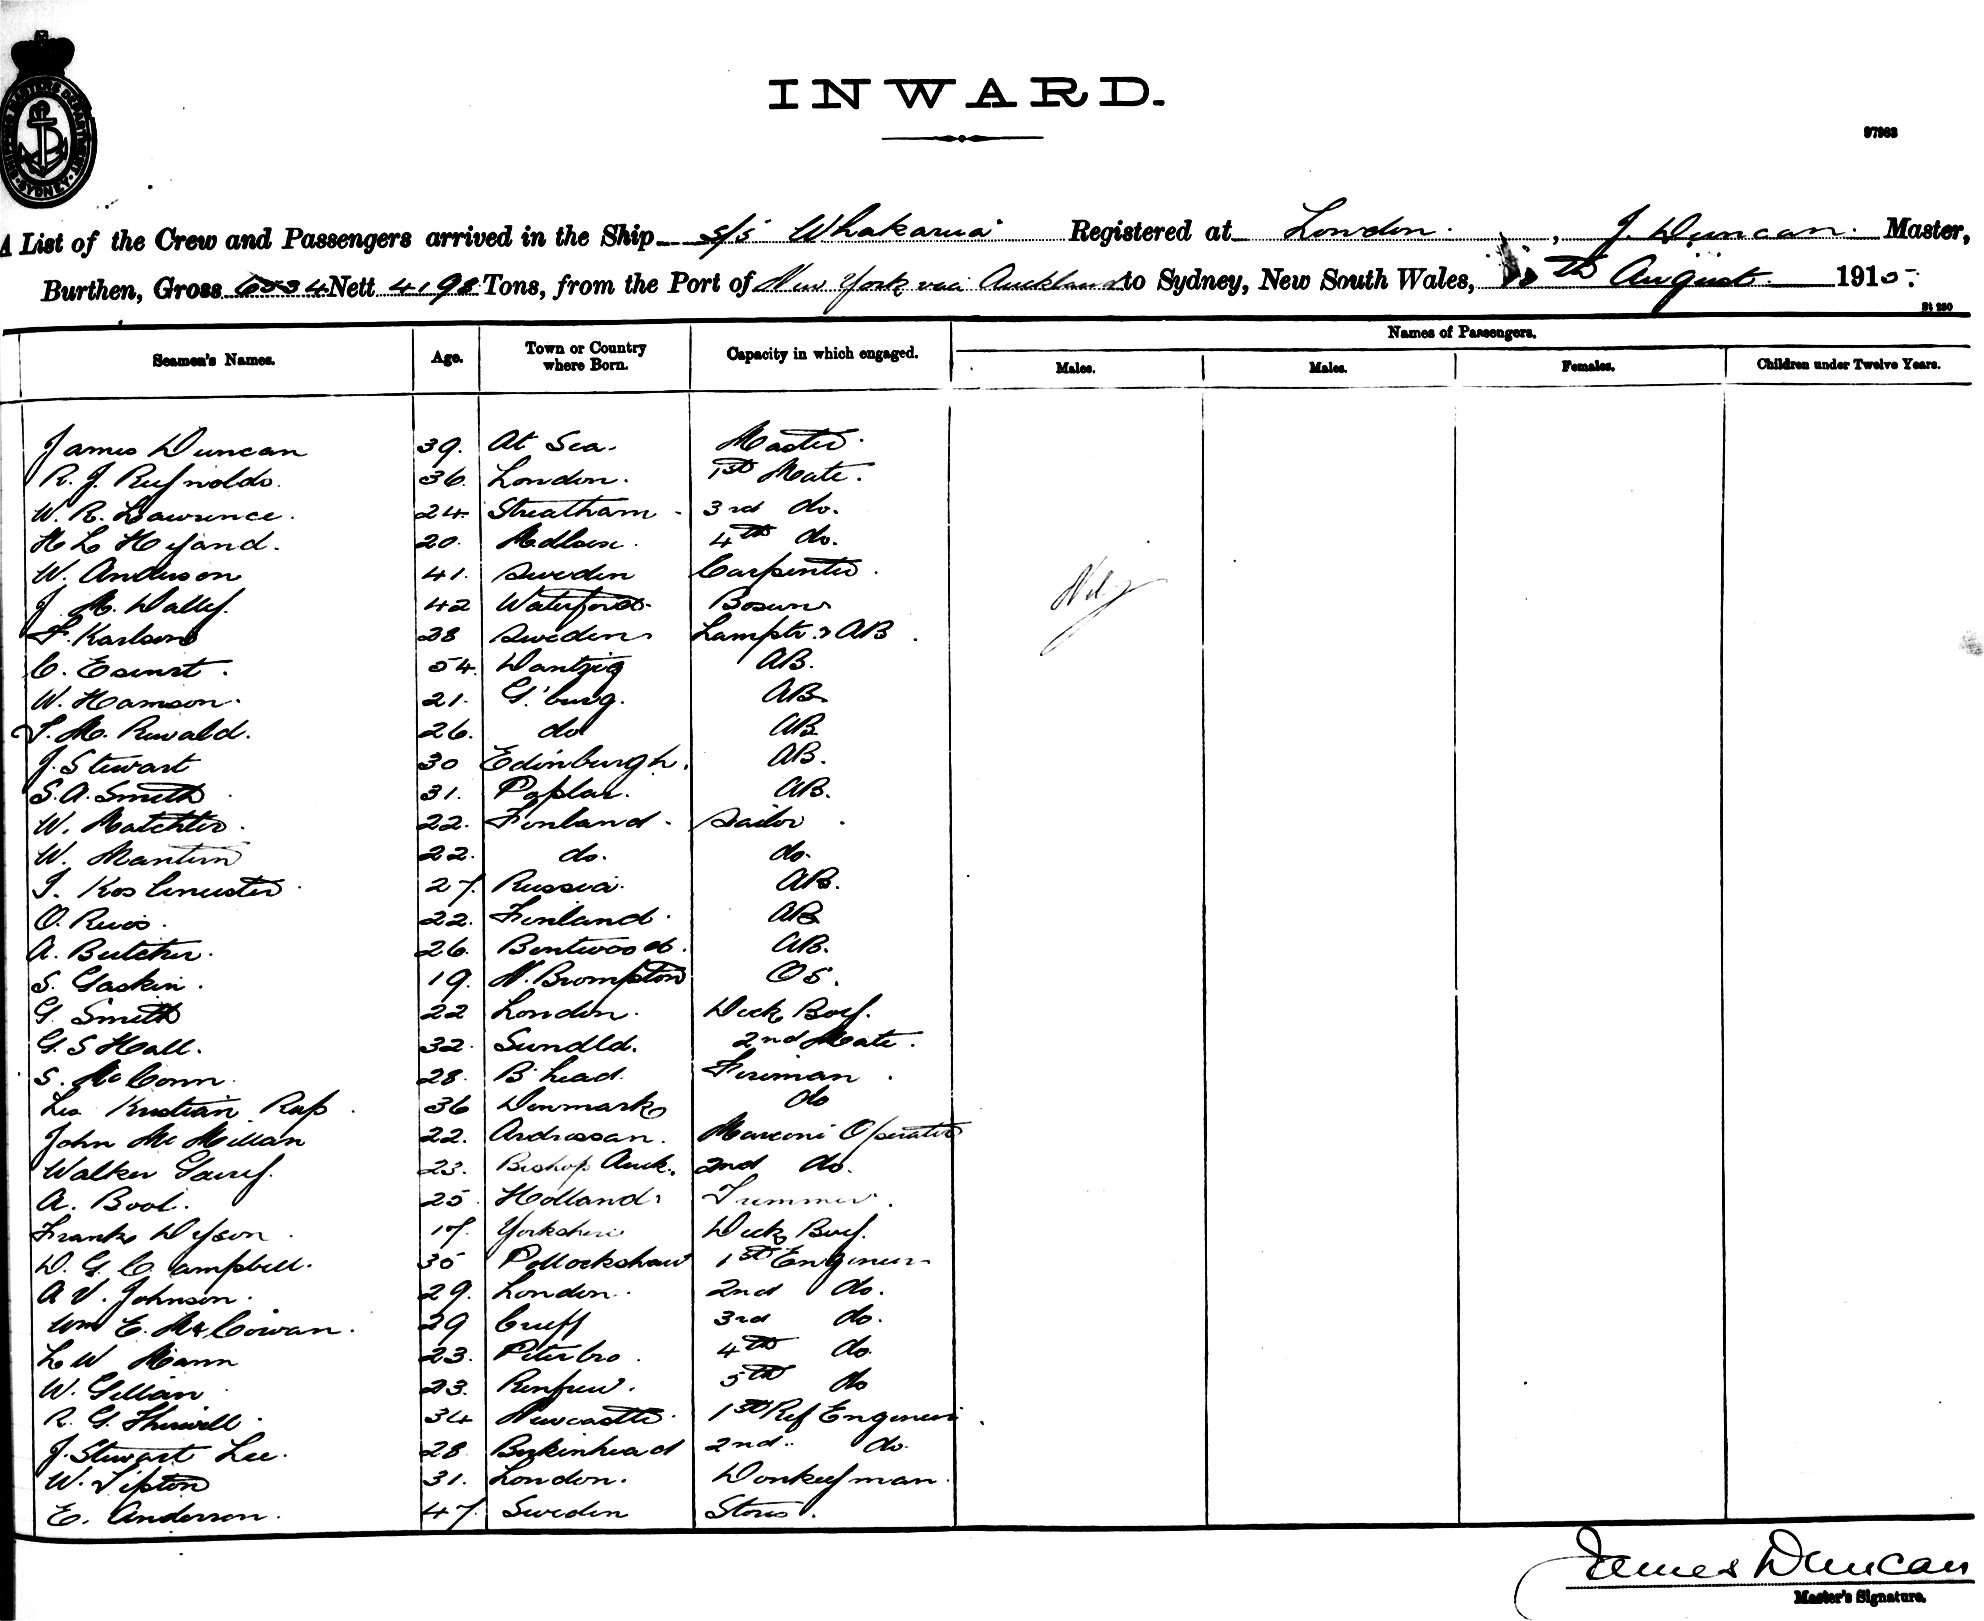 SHIPPING MASTERS DEPARTMENT SYDNEY
INWARD.
97983
A List of the Crew and Passengers arrived in the Ship s/s Whakarua Registered at London. , J. Duncan. Master,
Burthen, Gross 6534 Nett 4198 Tons, from the Port of New York via Auckland to Sydney, New South Wales, 10th August. 1915.
Seamen's Names. Age. Town or Country where Born. Capacity in which engaged. Names of Passengers.
Males. Males. Females. Children under Twelve Years.
James Duncan 39. At Sea. Master.
R. J. Reynolds. 36. London. 1st Mate.
W. R. Lawrence. 24. Streatham. 3rd do.
H L Hyand. 20. 4th do.
W. Anderson 41. Sweden Carpenter.
J. M. Dally. 42 Waterford. Bosun
F. Karlson 28 Sweden Lamptr. & AB.
C. Esenst. 54. Dantzig AB.
W. Hamson. 21. G'burg. AB.
T. M. Rewald. 26. do AB
J. Stewart 30 Edinburgh. AB.
S. A. Smith 31. Poplar. AB.
W. Matchter. 22. Finland. Sailor.
W. Mantern 22. do. do.
27. Russia. AB.
O. Reis. 22. Finland. AB
A. Butcher. 26. Bentwood. AB.
S. Gaskin. 19. N. Brompton OS.
G. Smith 22 London. Deck Boy.
G. S Hall. 32. Sundld. 2nd Mate.
S. McConn. 28. B'head. Fireman.
Les Kristian Rap. 36 Denmark do
John McMillan 22. Ardrossan. Marconi Operator
Walker 23. Bishop Auck. 2nd do.
A. Bool. 25 Holland. Trimmer.
Frank Dyson. 17. Yorkshire Deck Boy.
D. G. Campbell. 35 Pollockshaw 1st Engineer
A V. Johnson. 29. London. 2nd do.
Wm E. McCowan. 29 Crieff 3rd do.
L W Mann 23. Peterbro. 4th do.
W. Gillian 23. Renfrew. 5th do
R. G. Thirwell. 34 Newcastle. 1st Ref Engineer.
J. Stewart Lee. 28 Berkinhead 2nd do.
W. Tipton 31. London. Donkeyman.
E. Anderson. 47. Sweden Stores.
James Duncan
Master's Signature.